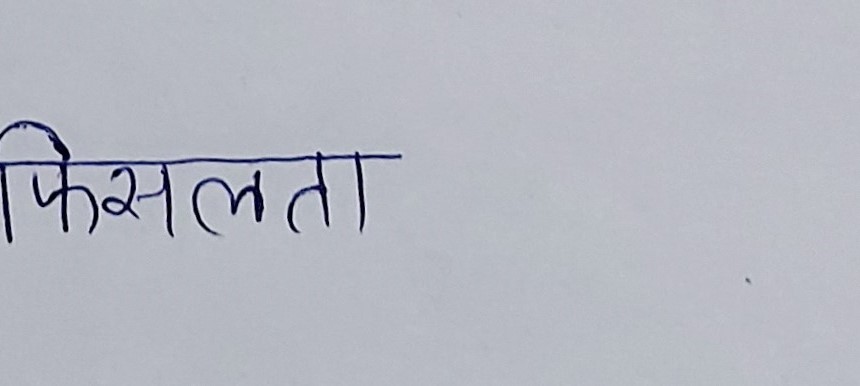 फिसलता